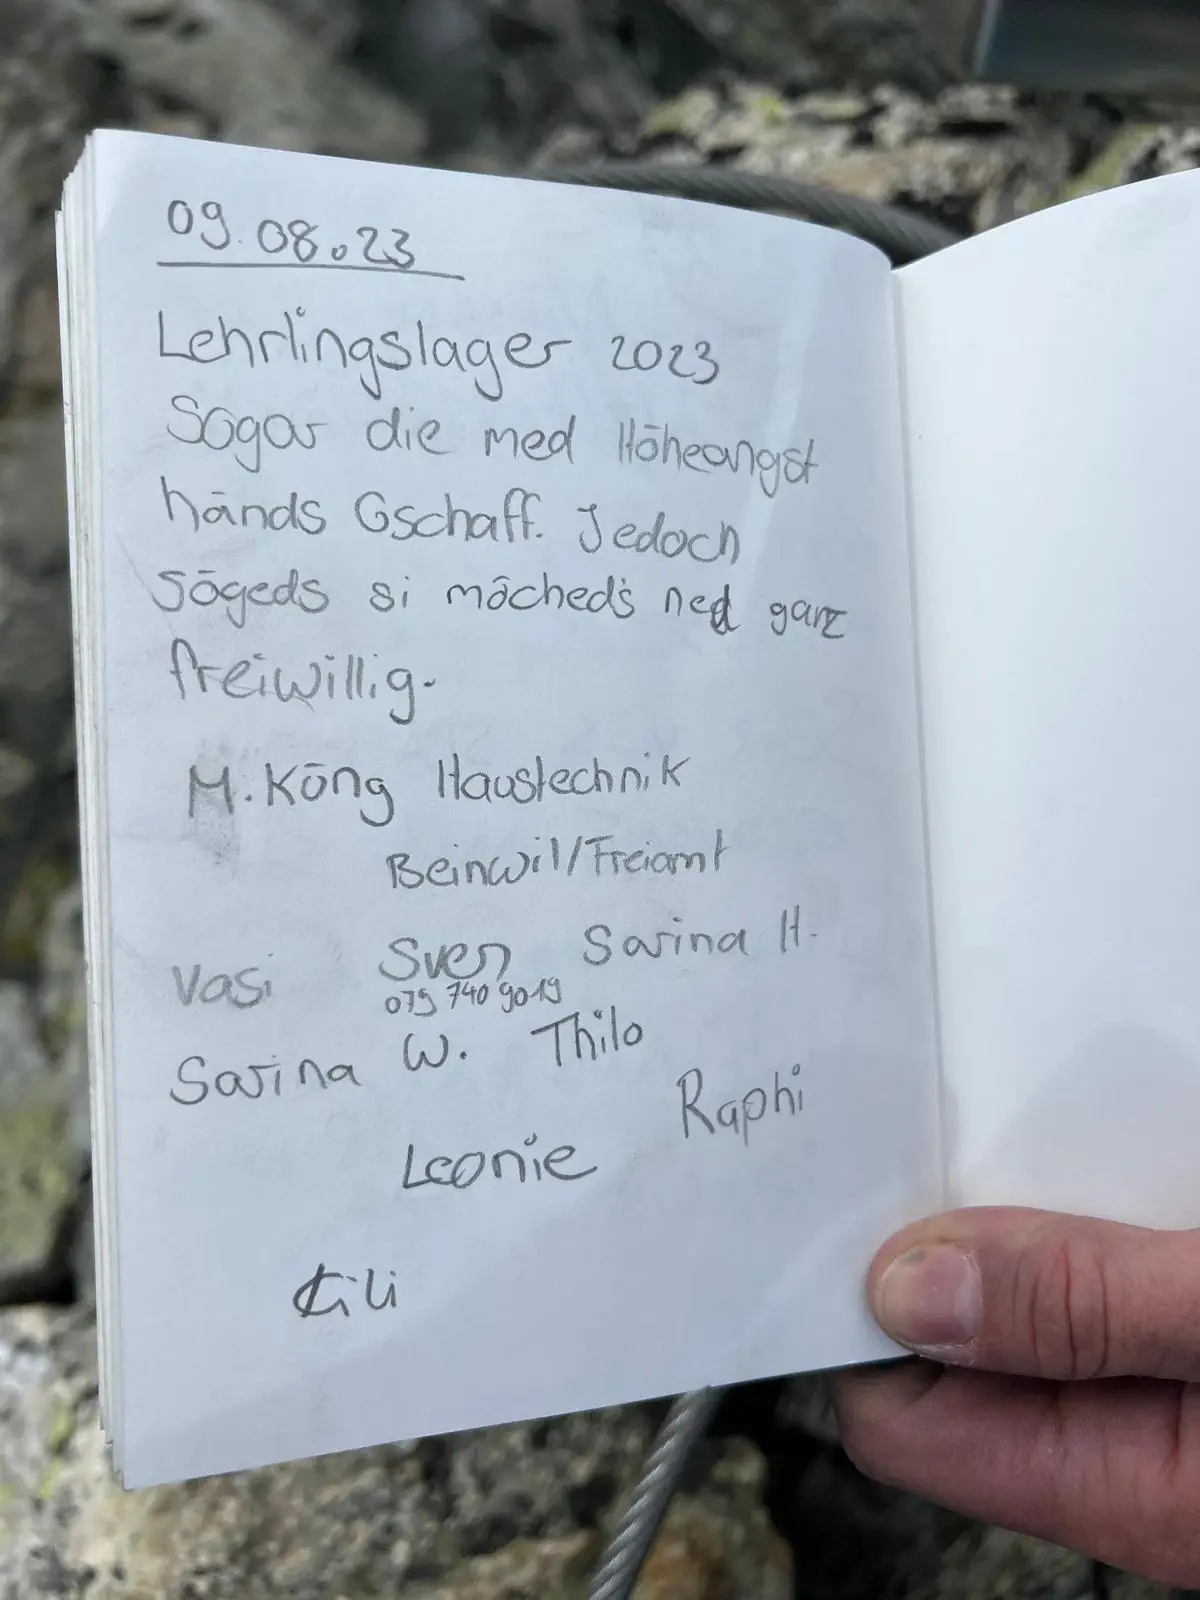 09.08.23
Lehrlingslager 2023
Sogar die med Höheangst
händs Gschaff. Jedoch
sägeds si mached's ned ganz
freiwillig.
M. Köng Haustechnik
Beinwil/Freiamt
Vasi Sven Sarina H.
079 740 90 19
Sarina W. Thilo
Raphi
Leonie
Kili